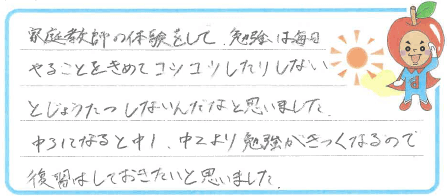 家庭教師の体験をして、勉強は毎日
やることをきめてコツコツしたりしない
とじょうたつしないんだなと思いました。
中3になると中1、中2より勉強がきつくなるので
復習はしておきたいと思いました。